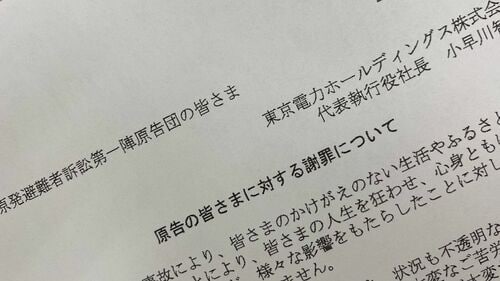 東京電力ホールディングス株式会
代表執行役社長 小早川智
原発避難者訴訟第一陣原告団の皆さま
原告の皆さまに対する謝罪について
事故により、皆さまのかけがえのない生活やふるさと
とにより、皆さまの人生を狂わせ、心身とも
様々な影響をもたらしたことに対し
ません。
状況も不透明な
変なご苦労